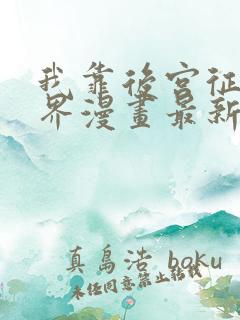 我靠後宮征
界漫畫最新
真島浩 baku
未任同意禁止轉載